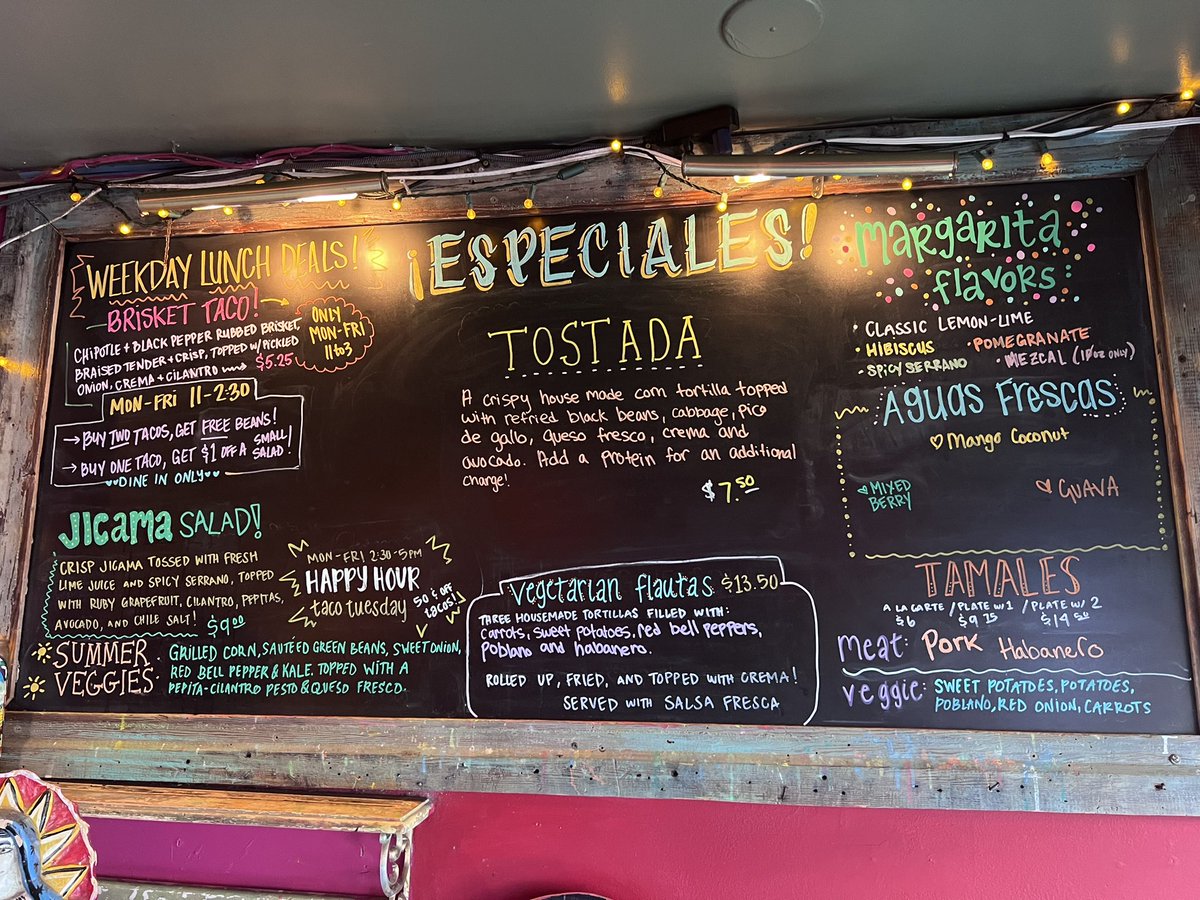 WEEKDAY LUNCH DEALS!
BRISKET TACO!
ONLY
MON-FRI
11 to 3
CHIPOTLE + BLACK PEPPER RUBBED BRISKET,
BRAISED TENDER + CRISP, TOPPED W/ PICKLED
ONION, CREMA + CILANTRO $5.25
MON-FRI 11-2:30
→ BUY TWO TACOS, GET FREE BEANS!
→ BUY ONE TACO, GET $1 OFF A SMALL SALAD!
DINE IN ONLY
JICAMA SALAD!
CRISP JICAMA TOSSED WITH FRESH
LIME JUICE AND SPICY SERRANO, TOPPED
WITH RUBY GRAPEFRUIT, CILANTRO, PEPITAS,
AVOCADO, AND CHILE SALT! $9.00
MON-FRI 2:30-5PM
HAPPY HOUR
taco tuesday 50¢ OFF
TACOS!
SUMMER
VEGGIES
GRILLED CORN, SAUTÉED GREEN BEANS, SWEET ONION,
RED BELL PEPPER & KALE. TOPPED WITH A
PEPITA-CILANTRO PESTO & QUESO FRESCO.
¡ESPECIALES!
TOSTADA
A crispy house made corn tortilla topped
with refried black beans, cabbage, pico
de gallo, queso fresco, crema and
avocado. Add a protein for an additional
charge!
$7.50
vegetarian flautas $13.50
THREE HOUSEMADE TORTILLAS FILLED WITH:
carrots, sweet potatoes, red bell peppers,
poblano and habanero.
ROLLED UP, FRIED, AND TOPPED WITH CREMA!
SERVED WITH SALSA FRESCA
margarita
flavors:
• CLASSIC LEMON-LIME
• HIBISCUS • POMEGRANATE
• SPICY SERRANO • MEZCAL (10oz ONLY)
AGUAS FRESCAS
Mango Coconut
MIXED
BERRY
GUAVA
TAMALES
A LA CARTE / PLATE W/ 1 / PLATE W/ 2
$6 $9.75 $14.50
meat: Pork Habanero
veggie: SWEET POTATOES, POTATOES,
POBLANO, RED ONION, CARROTS